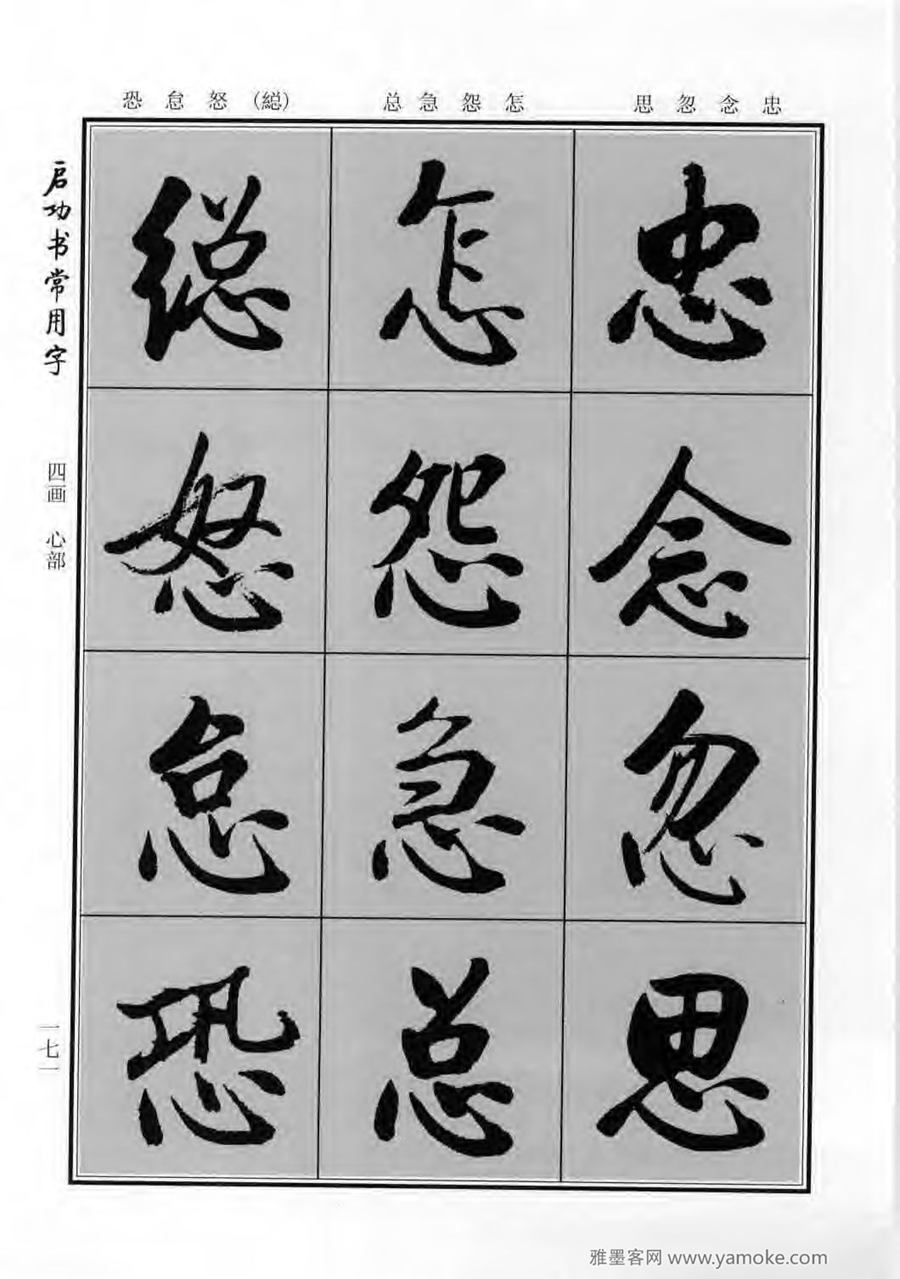 忠念忽思
怎怨急总
(緫)怒怠恐
启功书常用字
四画 心部
一七一
忠
念
忽
思
怎
怨
急
总
緫
怒
怠
恐
雅墨客网 www.yamoke.com